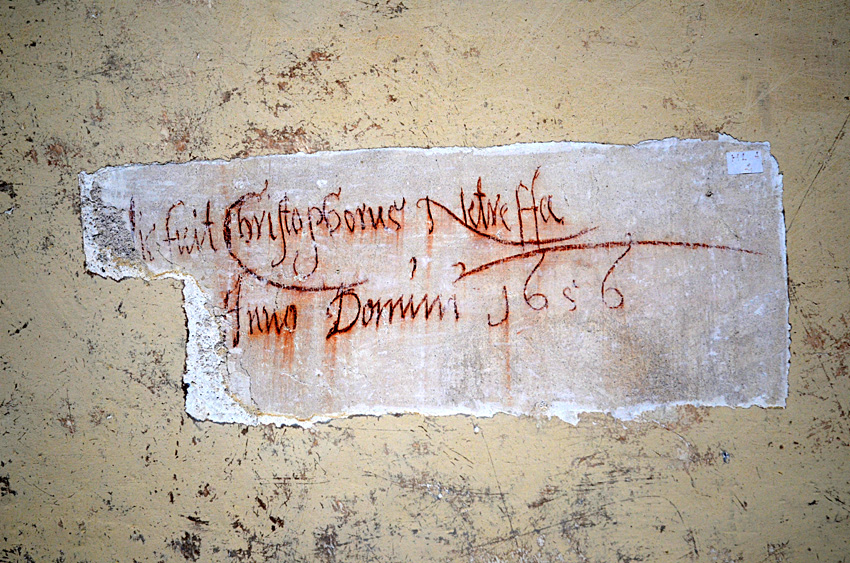 hic fuit Christophorus Netreffa
Anno Domini 1656